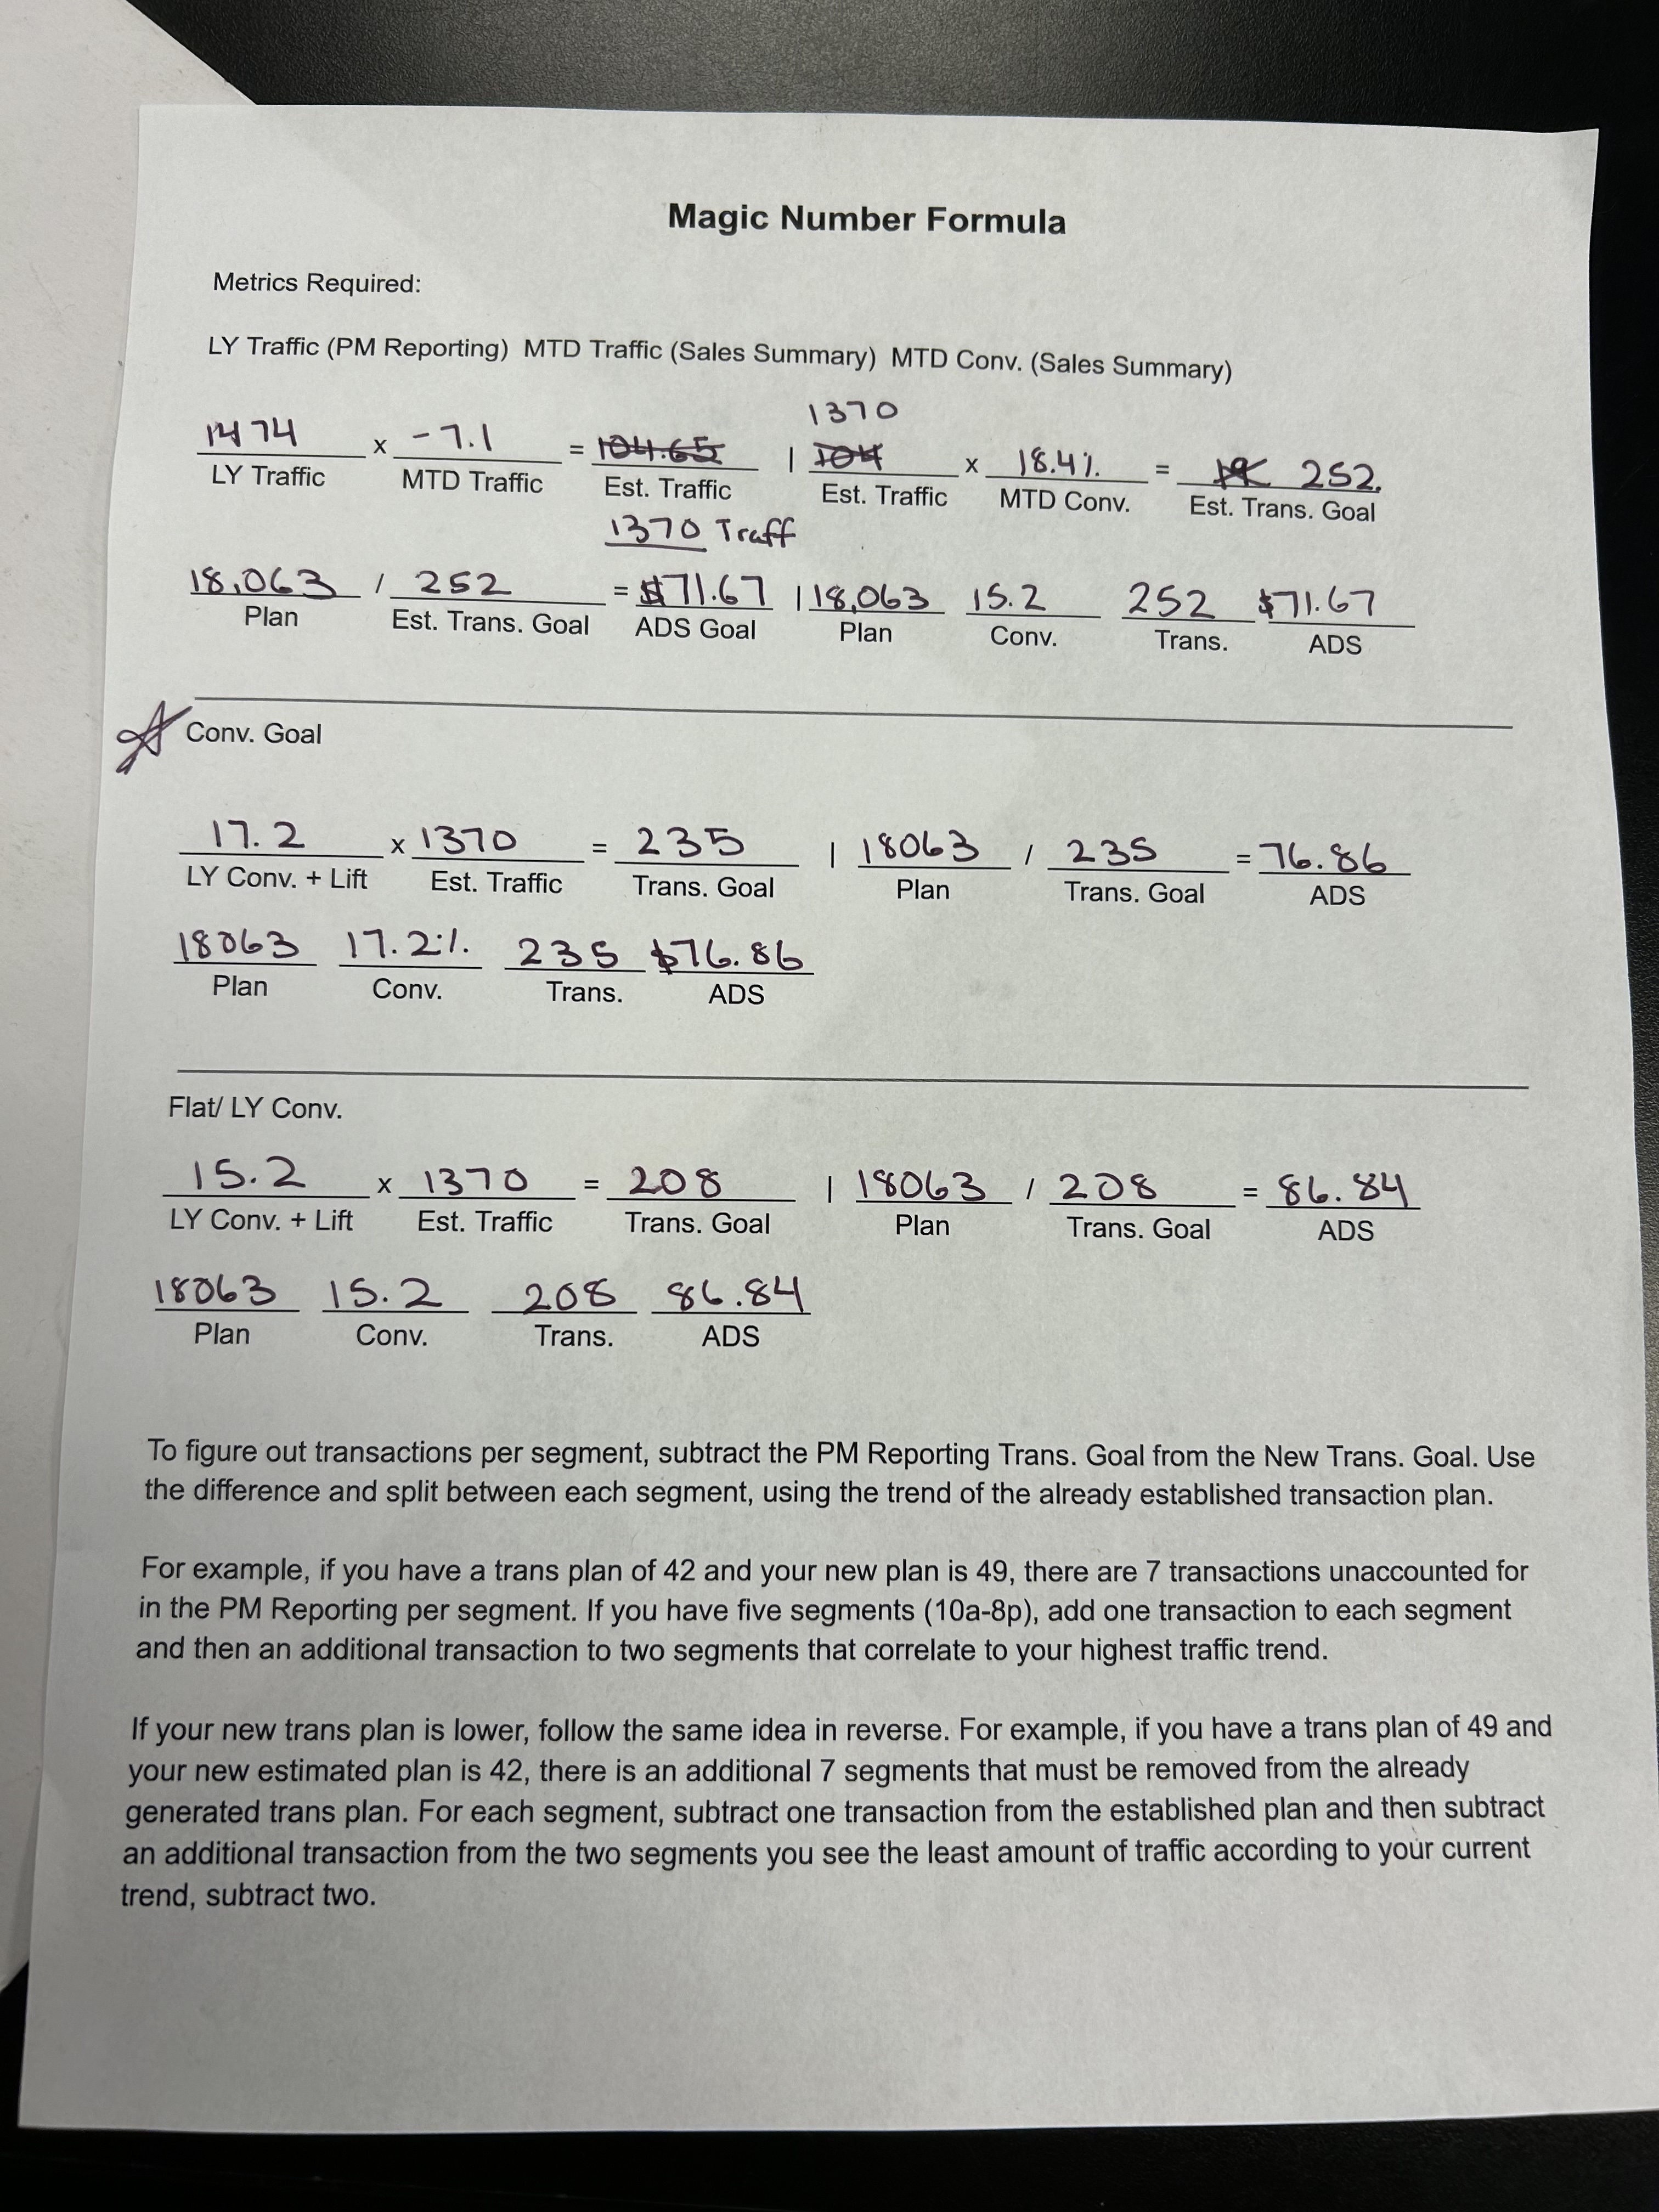 Magic Number Formula
Metrics Required:
LY Traffic (PM Reporting) MTD Traffic (Sales Summary) MTD Conv. (Sales Summary)
1370
1474 x -7.1 = 104.65 | 104 x 18.4% = 252.
LY Traffic MTD Traffic Est. Traffic Est. Traffic MTD Conv. Est. Trans. Goal
1370 Traff
18,063 / 252 = $71.67 | 18,063 15.2 252 $71.67
Plan Est. Trans. Goal ADS Goal Plan Conv. Trans. ADS
Conv. Goal
17.2 x 1370 = 235 | 18063 / 235 = 76.86
LY Conv. + Lift Est. Traffic Trans. Goal Plan Trans. Goal ADS
18063 17.2% 235 $76.86
Plan Conv. Trans. ADS
Flat/ LY Conv.
15.2 x 1370 = 208 | 18063 / 208 = 86.84
LY Conv. + Lift Est. Traffic Trans. Goal Plan Trans. Goal ADS
18063 15.2 208 86.84
Plan Conv. Trans. ADS
To figure out transactions per segment, subtract the PM Reporting Trans. Goal from the New Trans. Goal. Use
the difference and split between each segment, using the trend of the already established transaction plan.
For example, if you have a trans plan of 42 and your new plan is 49, there are 7 transactions unaccounted for
in the PM Reporting per segment. If you have five segments (10a-8p), add one transaction to each segment
and then an additional transaction to two segments that correlate to your highest traffic trend.
If your new trans plan is lower, follow the same idea in reverse. For example, if you have a trans plan of 49 and
your new estimated plan is 42, there is an additional 7 segments that must be removed from the already
generated trans plan. For each segment, subtract one transaction from the established plan and then subtract
an additional transaction from the two segments you see the least amount of traffic according to your current
trend, subtract two.